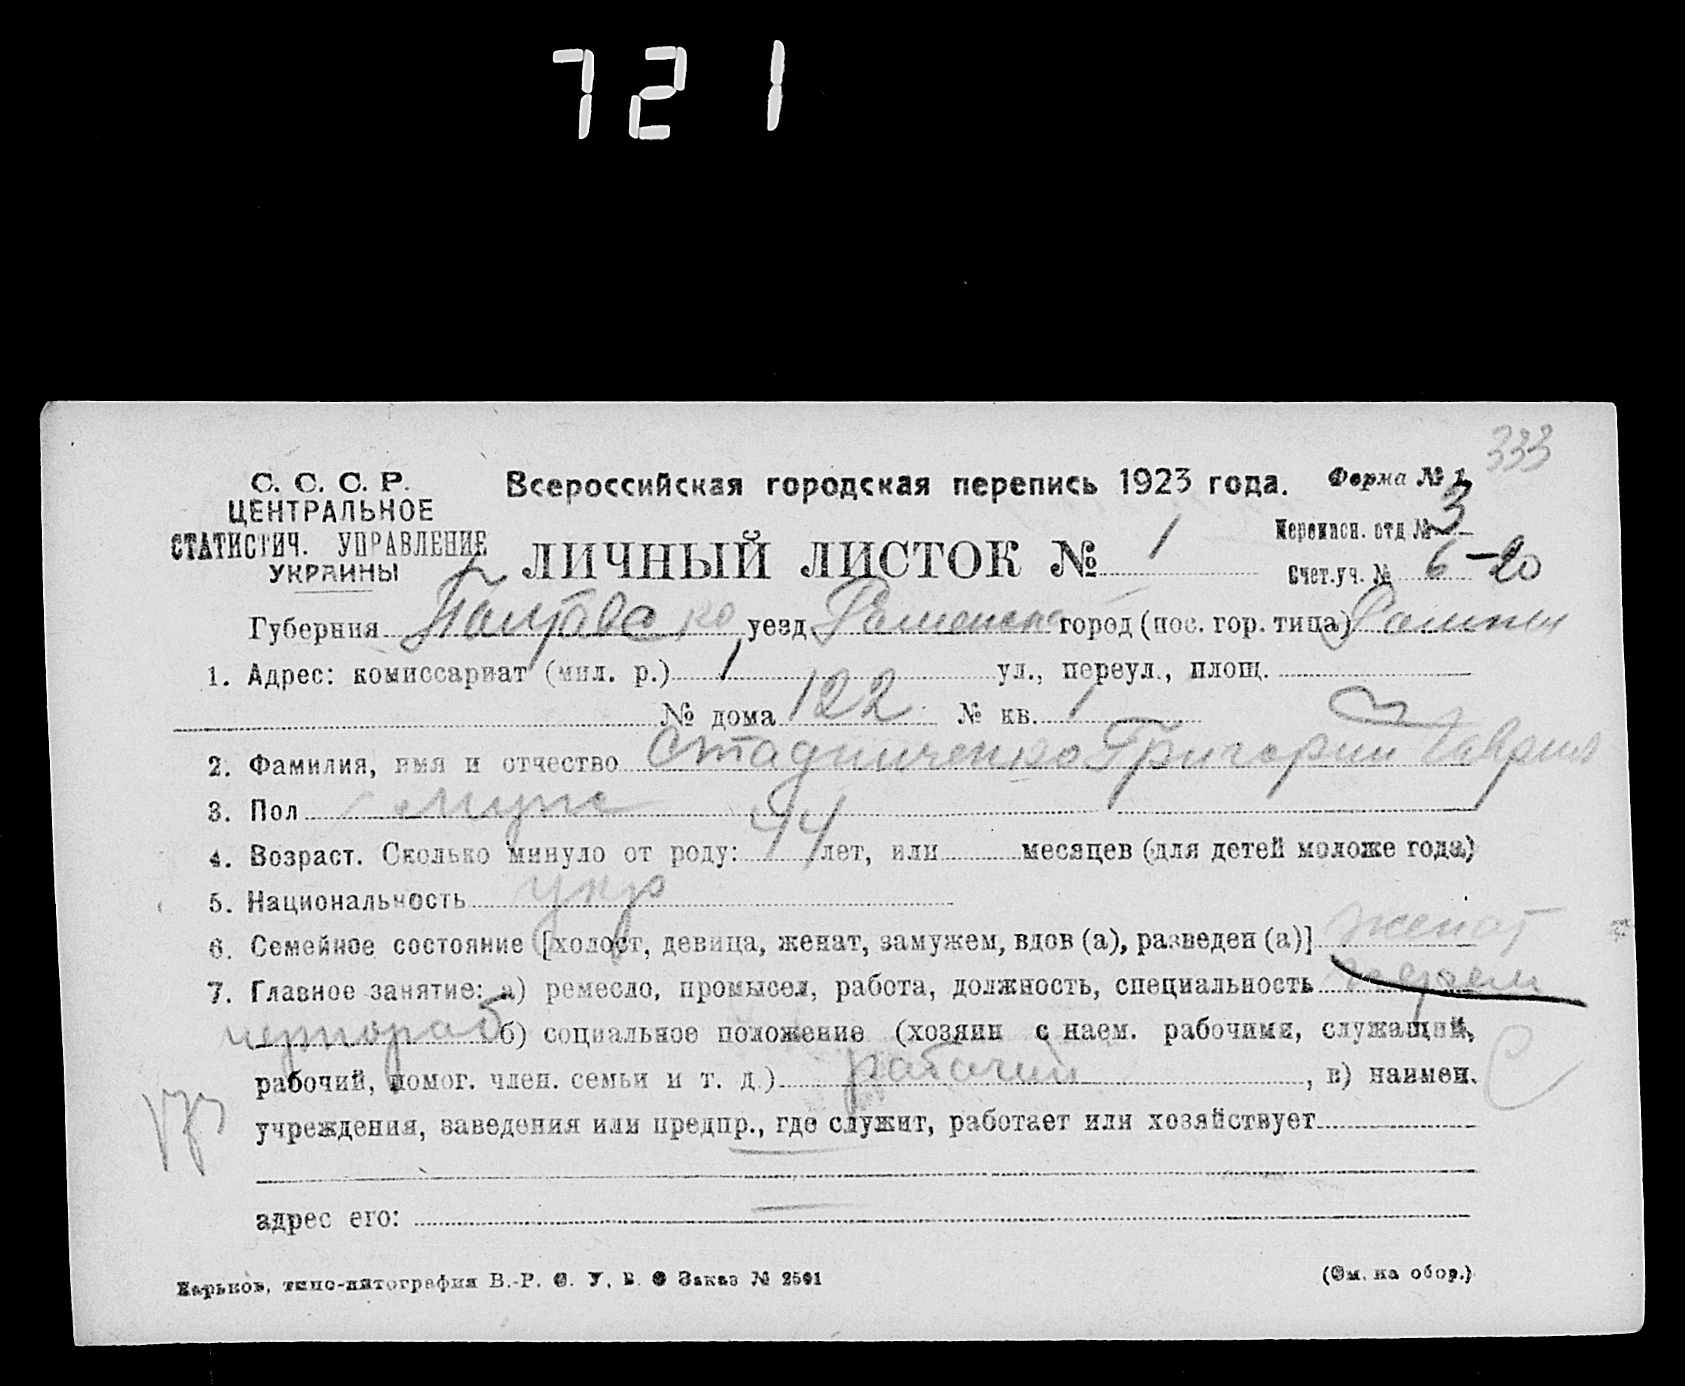 721
333
С. С. С. Р.
ЦЕНТРАЛЬНОЕ
СТАТИСТИЧ. УПРАВЛЕНИЕ
УКРАИНЫ
Всероссийская городская перепись 1923 года.
Форма № 1
ЛИЧНЫЙ ЛИСТОК № 1
Переписн. отд. № 3
Счет. уч. № 6-20
Губерния Полтавско уезд Роменск город (пос. гор. типа) Ромны
1. Адрес: комиссариат (мил. р.) 1 ул., переул., площ.
№ дома 122 № кв. 1
2. Фамилия, имя и отчество Стадниченко Григорий Гаврил
3. Пол муж
4. Возраст. Сколько минуло от роду: 44 лет, или месяцев (для детей моложе года)
5. Национальность укр
6. Семейное состояние [холост, девица, женат, замужем, вдов (а), разведен (а)] женат
7. Главное занятие: а) ремесло, промысел, работа, должность, специальность
чернораб б) социальное положение (хозяин с наем. рабочими, служащий,
рабочий, помог. член. семьи и т. д.) рабочий, в) наимен.
учреждения, заведения или предпр., где служит, работает или хозяйствует
адрес его:
Харьков, типо-литография В.-Р. Ф. У. В. О Заказ № 2591
(См. на обор.)